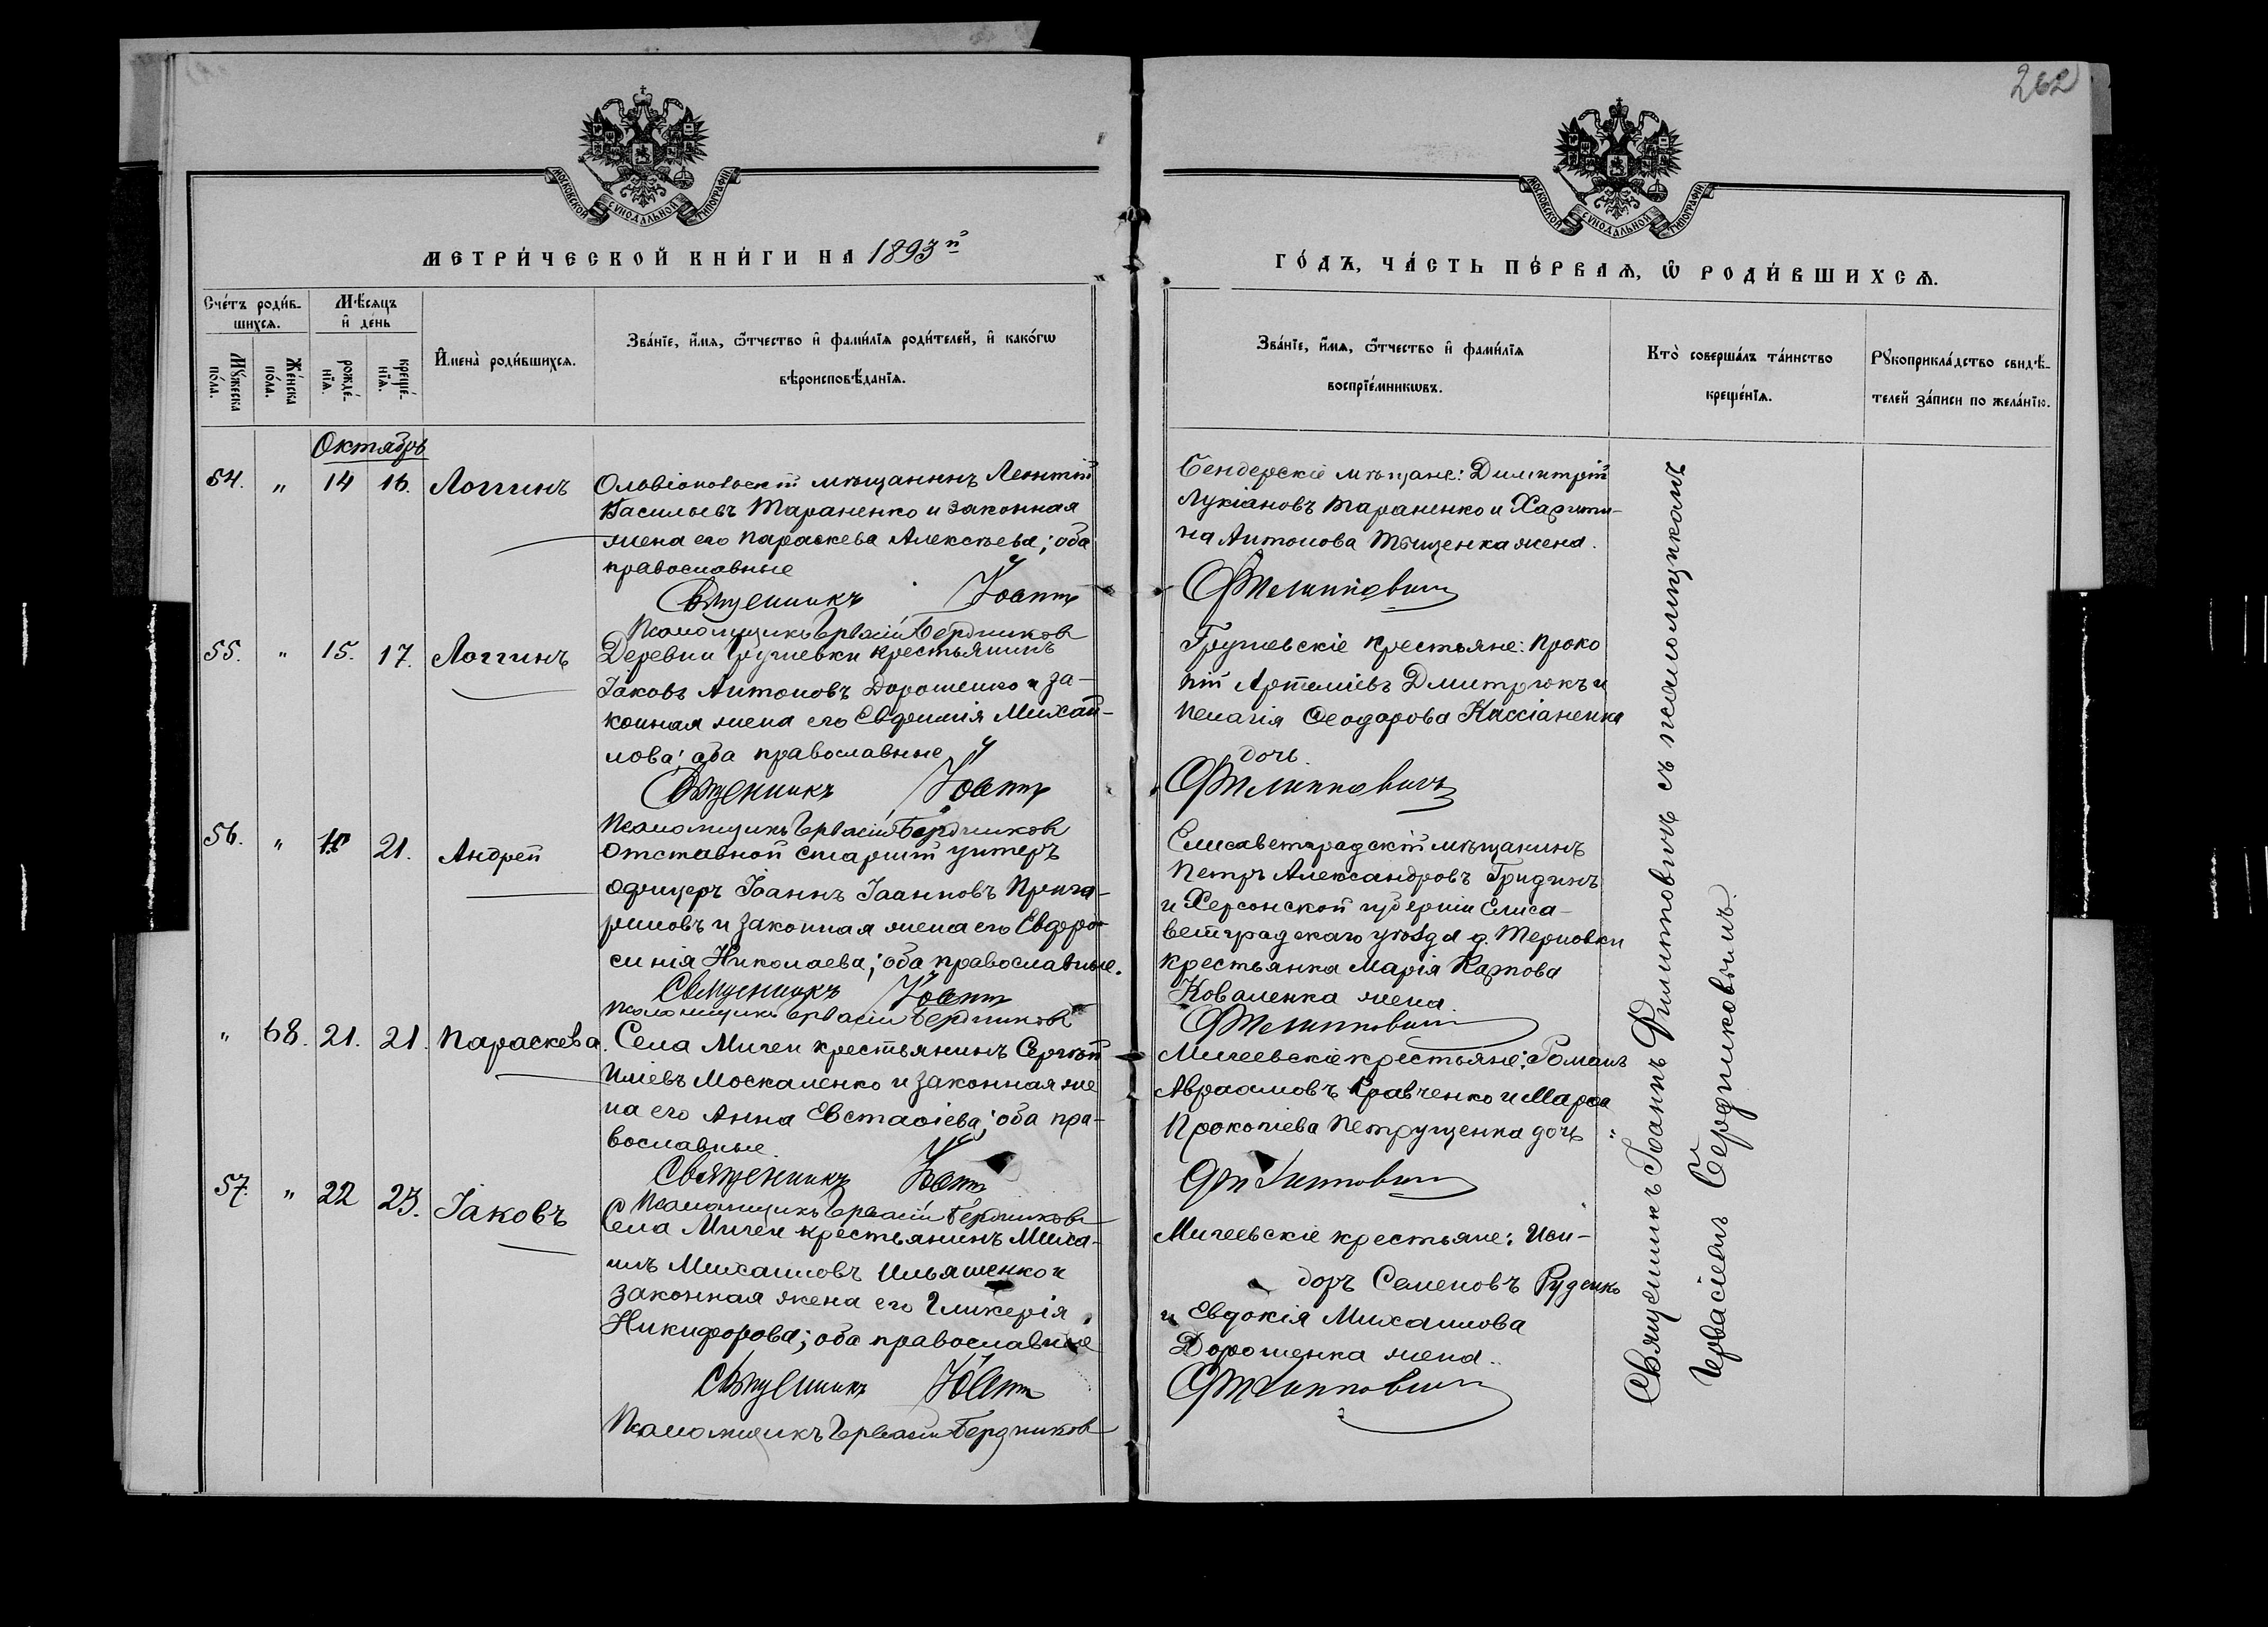 262
МОСКОВСКОЙ СѴНОДАЛЬНОЙ ТИПОГРАФІИ
МЕТРИ́ЧЕСКОЙ КНИ́ГИ НА 1893й
Сче́тъ роди́в-
шихсѧ.
Мѣ́сѧцъ
и҆ де́нь
Мꙋ́жеска
по́ла.
Же́нска
по́ла.
рожде́-
нїѧ.
креще́-
нїѧ.
И҆мена̀ роди́вшихсѧ.
Зва́нїе, и҆́мѧ, ѻ҆́тчество и҆ фами́лїѧ роди́телей, и҆ како́гѡ
вѣроисповѣ́данїѧ.
Октябрь
54. „ 14 16. Логгинъ
Ольвіопольскій мѣщанинъ Леонтій
Васильевъ Тараненко и законная
жена его Параскева Алексѣева; оба
православные
Священникъ Іоаннъ
Псаломщикъ Гервасій Бердников
55. „ 15. 17. Логгинъ
Деревни Грушевки крестьянинъ
Іаковъ Антоновъ Дорошенко и за-
конная жена его Евфимія Михаи-
лова; оба православные
Священникъ Іоаннъ
Псаломщикъ Гервасій Бердников
56. „ 21. Андрей
Отставной старшій унтеръ
офицеръ Іоаннъ Іоанновъ
и законная жена его Евфро-
синія Николаева; оба православные.
Священникъ Іоаннъ
Псаломщикъ Гервасій Бердников
„ 68. 21. 21. Параскева.
Села Мигеи крестьянинъ Сергѣй
Иліевъ Москаленко и законная же
на его Анна Евстафіева; оба пра-
вославные.
Священникъ Іоаннъ
Псаломщикъ Гервасій Бердников
57. „ 22 23. Іаковъ
Села Мигеи крестьянинъ Миха-
илъ Михаиловъ Ильяшенко и
законная жена его Гликерія
Никифорова; оба православные
Священникъ Іоаннъ
Псаломщикъ Гервасій Бердников
МОСКОВСКОЙ СѴНОДАЛЬНОЙ ТИПОГРАФІИ
ГО́ДЪ, ЧА́СТЬ ПЕ́РВАѦ, Ѡ҆ РОДИ́ВШИХСѦ.
Зва́нїе, и҆́мѧ, ѻ҆́тчество и҆ фами́лїѧ
воспрїе́мникѡвъ.
Кто̀ соверша́лъ та́инство
креще́нїѧ.
Рꙋкоприкла́дство свидѣ́-
телей за́писи по жела́нїю.
Бендерскіе мѣщане: Димитрій
Лукіановъ Тараненко и Харити-
на Антонова Тищенка жена.
Филипповичъ
Грушевскіе крестьяне: Проко
пій Артеміевъ Дмитрюкъ и
Пелагія Феодорова Кассіаненка
дочь.
Филипповичъ
Елисаветградскій мѣщанинъ
Петръ Александровъ Гридинъ
и Херсонской губерніи Елиса-
ветградскаго уѣзда д. Терновки
крестьянка Марія Карпова
Коваленка жена
Филипповичъ
Мигеевскіе крестьяне: Романъ
Авраамовъ Кравченко и Марфа
Прокопіева Петрущенка дочь
Филипповичъ
Мигеевскіе крестьяне: Иси-
доръ Семеновъ Руденко
и Евдокія Михаилова
Дорошенка жена.
Филипповичъ
Священникъ Іоаннъ Филипповичъ съ псаломщикомъ
Гервасіемъ Бердниковымъ.